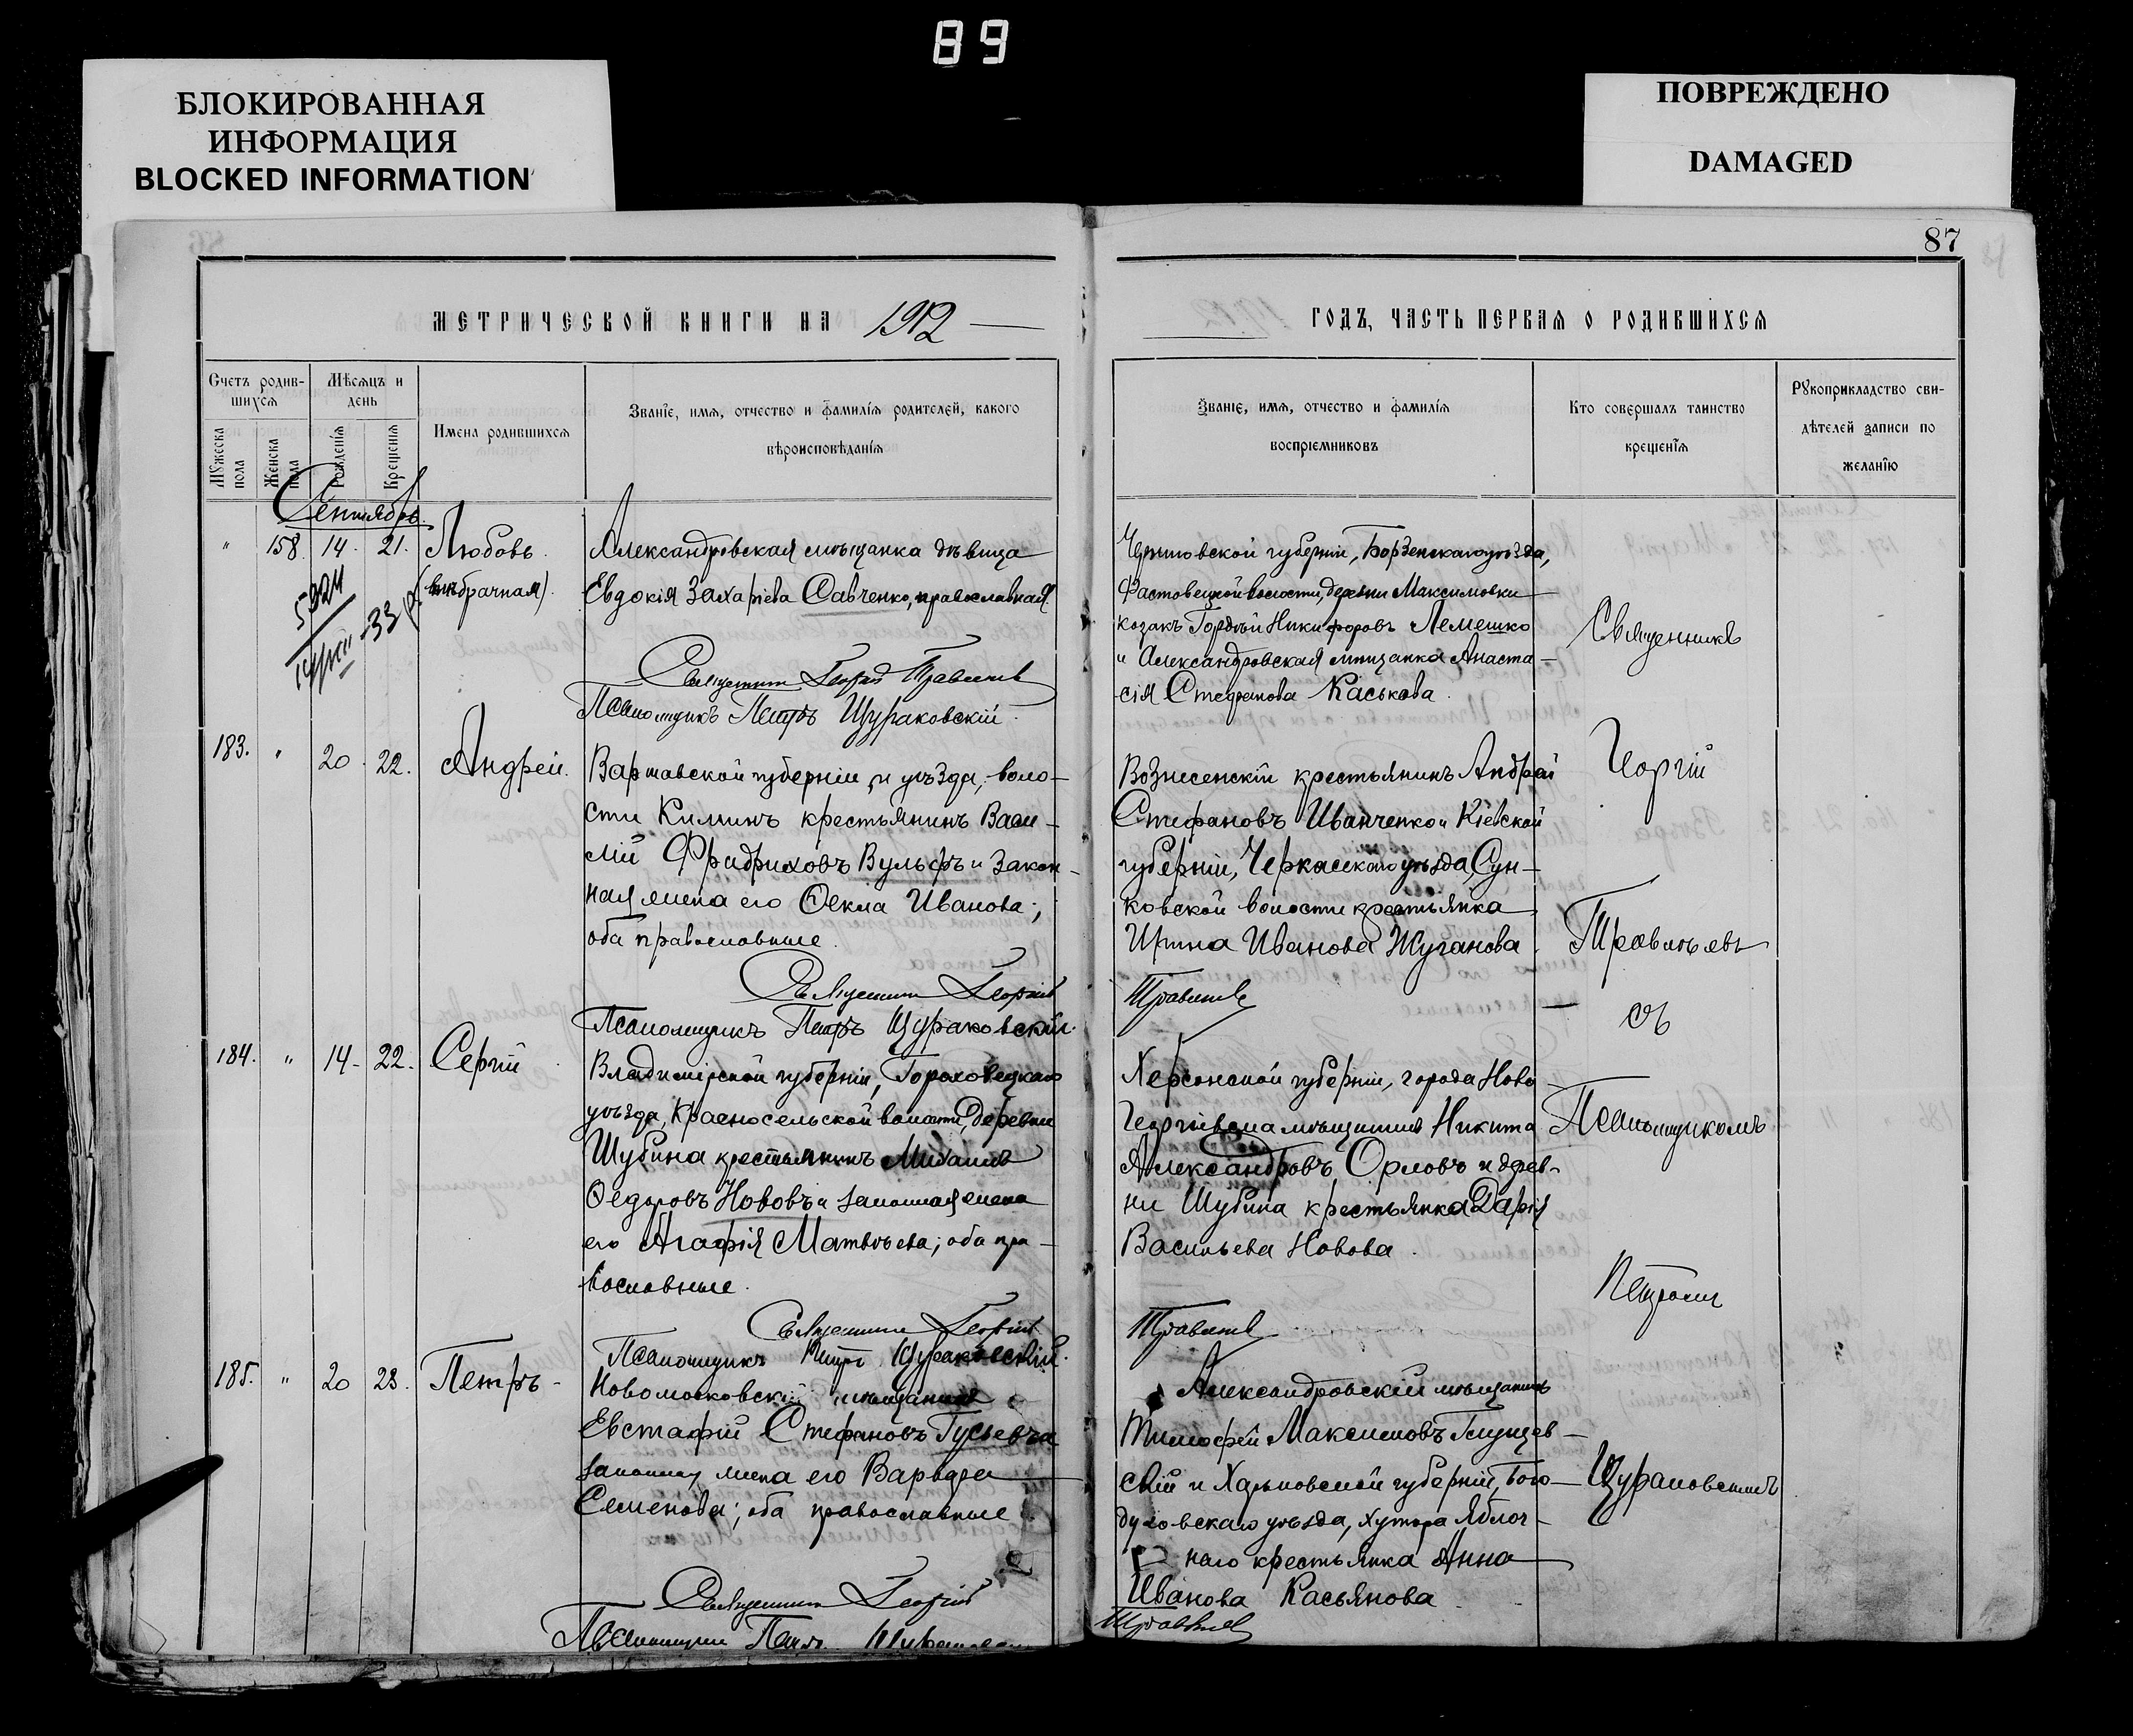 89
БЛОКИРОВАННАЯ
ИНФОРМАЦИЯ
BLOCKED INFORMATION
ПОВРЕЖДЕНО
DAMAGED
87
МЕТРИЧЕСКОЙ КНИГИ НА 1912
ГОДЪ, ЧАСТЬ ПЕРВАЯ О РОДИВШИХСЯ
Счетъ родив-
шихся
Мѣсяцъ и
день
Мужеска пола
Женска пола
Рожденія
Крещенія
Имена родившихся
Званіе, имя, отчество и фамилія родителей, какого
вѣроисповѣданія
Званіе, имя, отчество и фамилія
воспріемниковъ
Кто совершалъ таинство
крещенія
Рукоприкладство сви-
дѣтелей записи по
желанію
Сентябрь.
" 158. 14. 21. Любовь.
(внѣбрачная).
Александровская мѣщанка дѣвица
Евдокія Захаріева Савченко, православная.
Священникъ Георгій Правилевъ
Псаломщикъ Петръ Щураковскій.
Черниговской губерніи, Борзенскаго уѣзда,
Фастовецкой волости, деревни Максимовки
козакъ Гордѣй Никифоровъ Лемешко
и Александровская мѣщанка Анаста-
сія Стефанова Каськова.
183. " 20. 22. Андрей.
Варшавской губерніи, и уѣзда, воло-
сти Киминъ крестьянинъ Васи-
лій Фридриховъ Вульфъ и закон-
ная жена его Ѳекла Иванова;
оба православные.
Священникъ Георгій
Псаломщикъ Петръ Щураковскій.
Вознесенскій крестьянинъ Андрей
Стефановъ Иванченко и Кіевской
губерніи, Черкасскаго уѣзда, Сун-
ковской волости крестьянка
Ирина Иванова Жуганова.
Правилевъ
184. " 14. 22. Сергій
Владимірской губерніи, Гороховецкаго
уѣзда, Красносельской волости, деревни
Шубина крестьянинъ Михаилъ
Ѳедоровъ Нововъ и законная жена
его Агафія Матвѣева; оба пра-
вославные.
Священникъ Георгій
Псаломщикъ Петръ Щураковскій.
Херсонской губерніи, города Ново-
Георгіевска мѣщанинъ Никита
Александровъ Орловъ и дерев-
ни Шубина крестьянка Дарія
Васильева Новова.
Правилевъ
185. " 20 23. Петръ
Новомосковскій мѣщанинъ
Евстафій Стефановъ Гусьевъ и
законная жена его Варвара
Семенова; оба православные
Священникъ Георгій
Псаломщикъ Петръ
Александровскій мѣщанинъ
Тимофей Максимовъ
скій и Харьковской губерніи, Бого-
духовскаго уѣзда, хутора Яблоч-
наго крестьянка Анна
Иванова Касьянова
Правилевъ
Священникъ
Георгій
Правилевъ
съ
Псаломщикомъ
Петромъ
Щураковскимъ